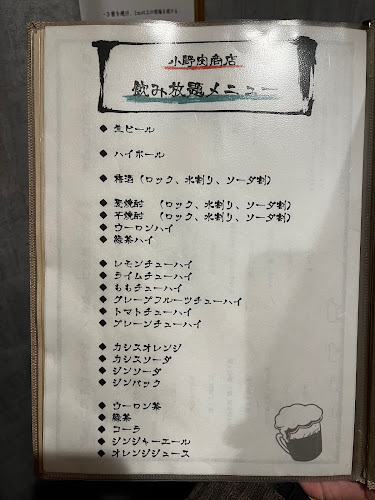 小野肉商店
飲み放題メニュー
◆ 生ビール
◆ ハイボール
◆ 梅酒（ロック、水割り、ソーダ割）
◆ 麦焼酎　（ロック、水割り、ソーダ割）
◆ 芋焼酎　（ロック、水割り、ソーダ割）
◆ ウーロンハイ
◆ 緑茶ハイ
◆ レモンチューハイ
◆ ライムチューハイ
◆ ももチューハイ
◆ グレープフルーツチューハイ
◆ トマトチューハイ
◆ プレーンチューハイ
◆ カシスオレンジ
◆ カシスソーダ
◆ ジンソーダ
◆ ジンバック
◆ ウーロン茶
◆ 緑茶
◆ コーラ
◆ ジンジャーエール
◆ オレンジジュース